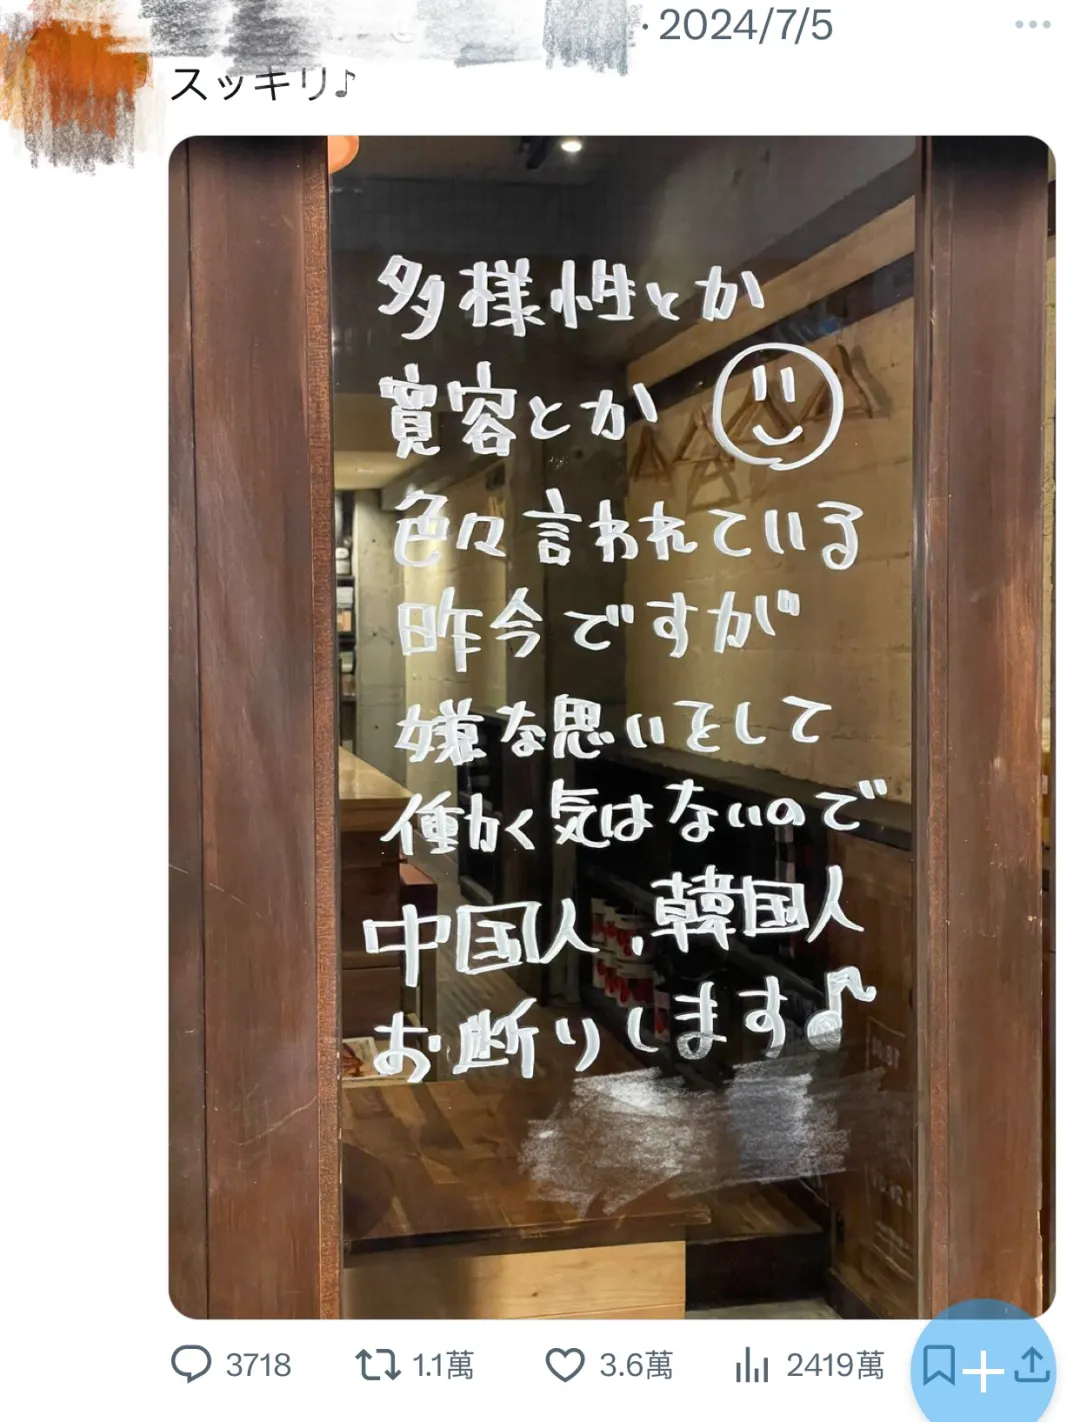 · 2024/7/5
スッキリ♪
多様性とか
寛容とか
色々言われている
昨今ですが
嫌な思いをして
働く気はないので
中国人、韓国人
お断りします♪
3718
1.1萬
3.6萬
2419萬